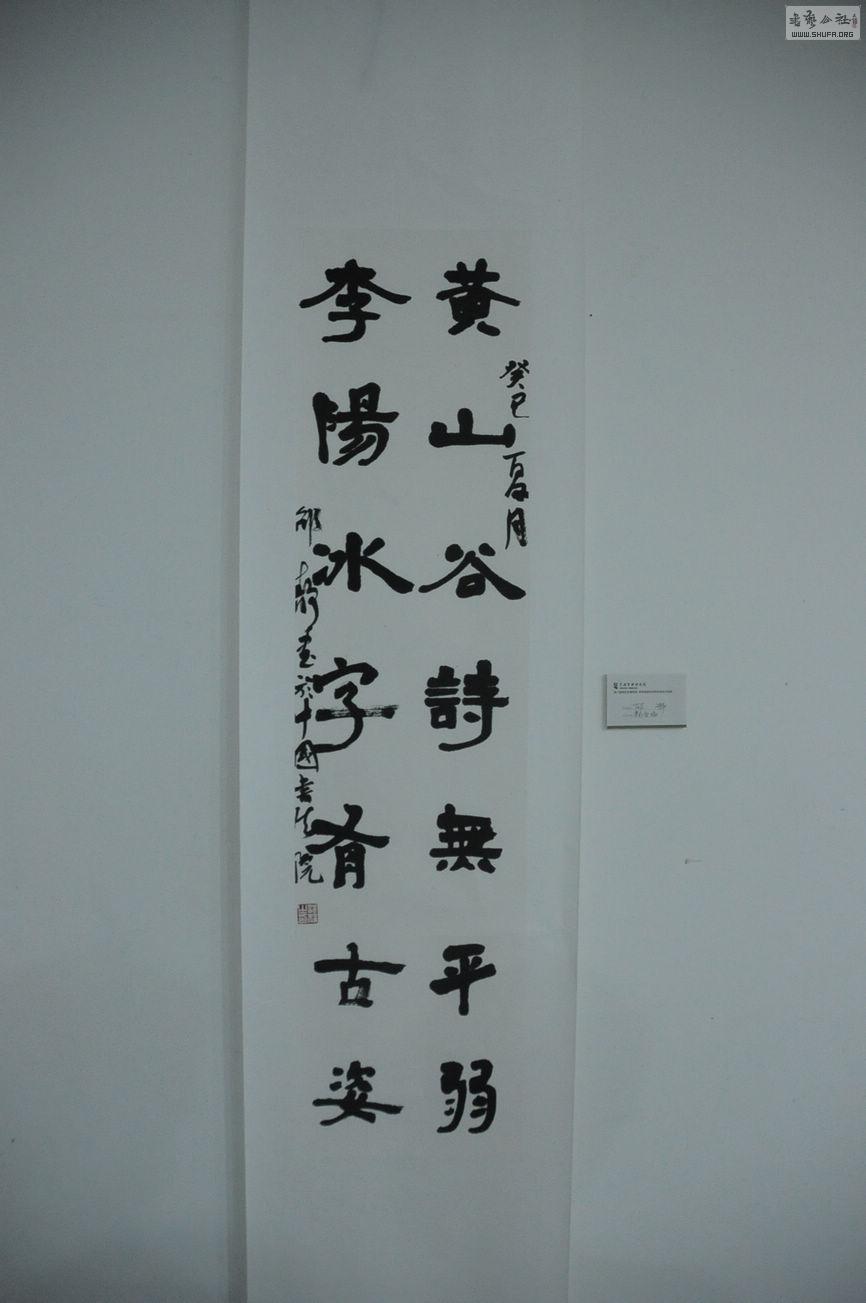 黄山谷詩無平弱
李陽冰字有古姿
癸巳夏月
邵
書於中國書法院
WWW.SHUFA.ORG